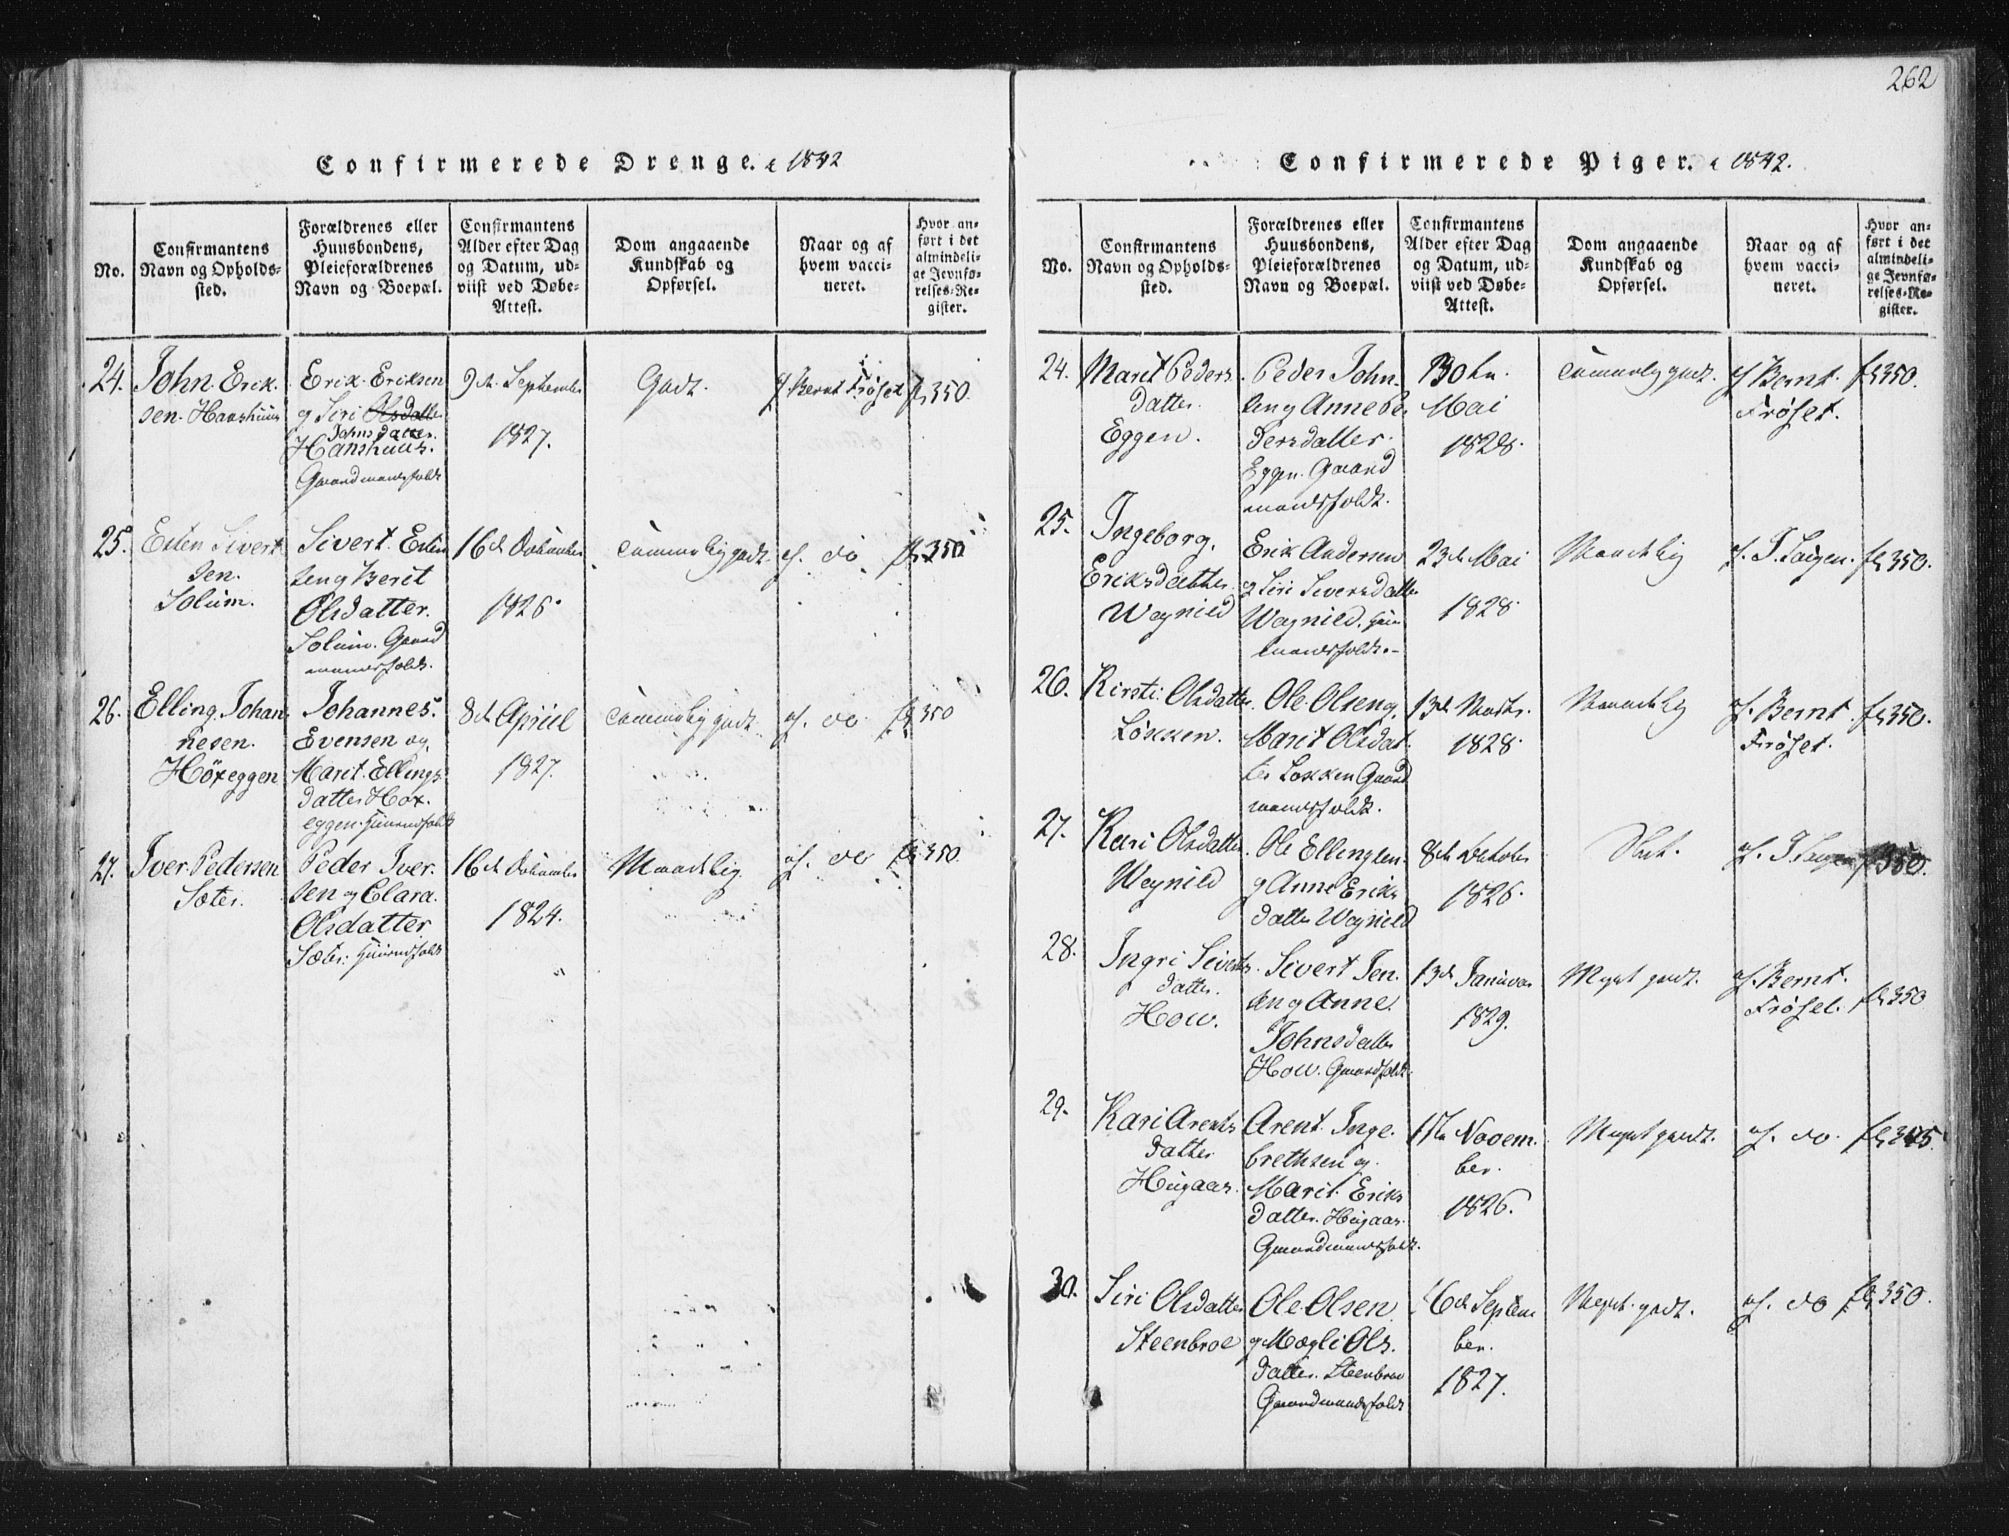 262
Confirmerede Drenge. 1842
No.
Confirmantens
Navn og Opholds-
sted.
Forældrenes eller
Huusbondens,
Pleieforældrenes
Navn og Boepæl.
Confirmantens
Alder efter Dag
og Datum, ud-
viist ved Døbe-
Attest.
Dom angaaende
Kundskab og
Opførsel.
Naar og af
hvem vacci-
neret.
Hvor an-
ført i det
almindeli-
ge Jevnfø-
relses-Re-
gister.
24.
John Erik-
sen Hanshuus
Erik Eriksen
og Siri Olsdatter
Johnsdatter
Hanshuus.
Gaardmandsfolk
9de September
1827.
Godt.
af Bernt Frøset
fl 350.
25.
Esten Sivert
sen.
Solum.
Sivert Esten
sen og Berit
Olsdatter.
Solum. Gaard
mandsfolk.
16de
1826.
Temmelig godt
af. do.
fl 350
26.
Elling Johan
nesen.
Höxeggen
Johannes
Evensen og
Marit Ellings
datter Hox
eggen.
8de Apriil
1827.
Temmelig godt
af. do
fl 350
27.
Iver Pedersen
Sæter.
Peder Iver
sen og Clara
Olsdatter
Sæter.
16de
1824.
Maadelig
af. do
fl 350.
Confirmerede Piger. 1842.
No.
Confirmantens
Navn og Opholds-
sted.
Forældrenes eller
Huusbondens,
Pleieforældrenes
Navn og Boepæl.
Confirmantens
Alder efter Dag
og Datum, ud-
viist ved Døbe-
Attest.
Dom angaaende
Kundskab og
Opførsel.
Naar og af
hvem vacci-
neret.
Hvor an-
ført i det
almindeli-
ge Jevnfø-
relses-Re-
gister.
24.
Marit Peders
datter
Eggen.
Peder John
sen og Anne Pe
dersdatter
Eggen. Gaard
mandsfolk.
Mai
1828.
Temmelig godt.
af Bernt
Frøset.
fl 350.
25.
Ingeborg
Eriksdatter
Wagnild
Erik Andersen
og Siri Siversdatter
Wagnild.
mandsfolk.
23de Mai
1828
Maadelig
af.
fl 350.
26.
Kirsti Olsdatter
Løkken.
Ole Olsen og
Marit Olsdat
ter Løkken Gaard
mandsfolk.
13de Marts.
1828.
Maadelig
af. Bernt
Frøset.
fl 350.
27.
Kari Olsdatter
Wagnild
Ole Ellingsen
og Anne Eriks
datter Wagnild
8de Octobr
1826.
Slet.
af.
350.
28.
Ingri Siverts
datter.
How.
Sivert Jen
sen og Anne
Johnsdatter
How. Gaardfolk.
13de Januar
1829.
Meget godt.
af. Bernt
Frøset.
fl 350
29.
Kari Arents
datter
Hugaas.
Arent Inge
brethsen og
Marit Eriks
datter. Hugaas.
Gaardmandsfolk.
17de Novem
ber.
1826.
Meget godt.
af. do.
fl 345.
30.
Siri Olsdatter
Steenbroe
Ole Olsen
og Magli Ols
datter. Steenbroe
Gaardmandsfolk
16de Septem
ber.
1827.
Meget godt.
af. do
fl 350.